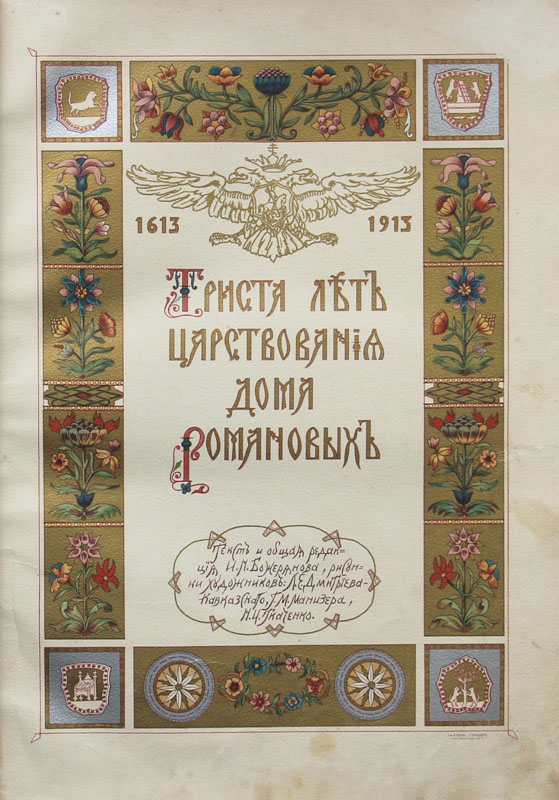 1613 1913
Триста лѣтъ
царствованія
дома
Романовыхъ
Текстъ и общая редак-
ція И.Н. Божерянова, рисун-
ки художниковъ: Л.Е. Дмитріева-
Кавказскаго, Г.М. Манизера,
Н.Ц. Ткаченко.